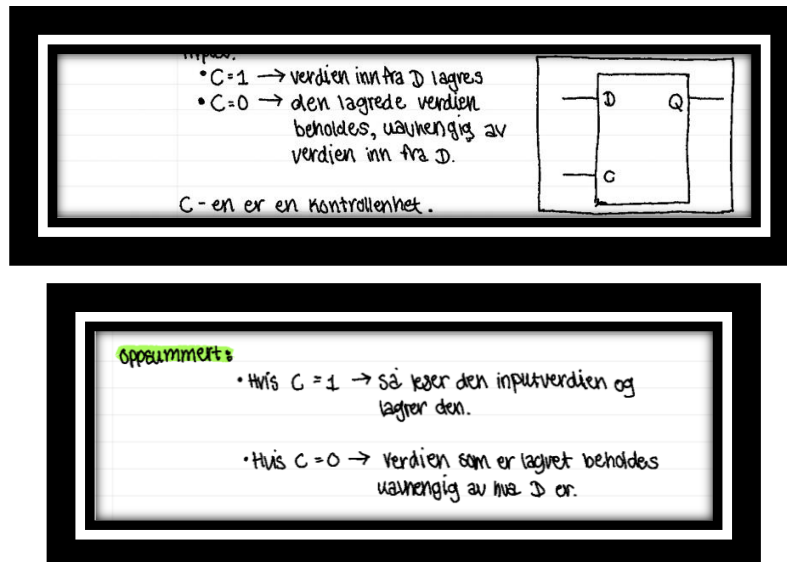 • C=1 → verdien inn fra D lagres
• C=0 → den lagrede verdien
beholdes, uavhengig av
verdien inn fra D.
C-en er en kontrollenhet.
D Q
C
oppsummert:
• Hvis C = 1 → så leser den inputverdien og
lagrer den.
• Hvis C = 0 → verdien som er lagret beholdes
uavhengig av hva D er.